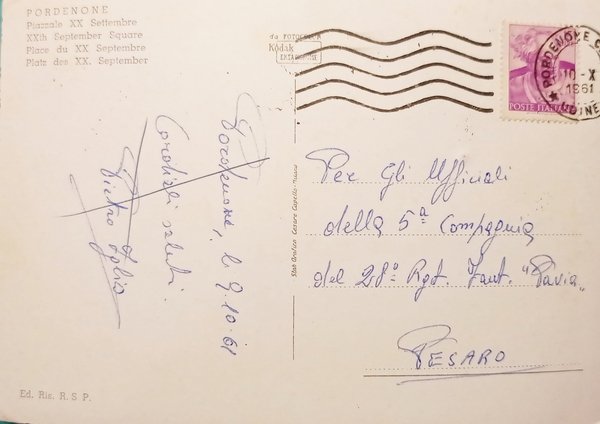 PORDENONE
Piazzale XX Settembre
XXth September Square
Place du XX Septembre
Platz des XX. September
da FOTOCOLOR
Kodak
EKTACHROME
PORDENONE
10-X
1961
UDINE
POSTE ITALIANE
Pordenone, li 9.10.61
Cordiali saluti.
Pietro
Per Gli Ufficiali
della 5ª Compagnia
del 28º Rgt. Fant. "Pavia"
PESARO
Cesare Capello
Ed. Ris. R. S P.